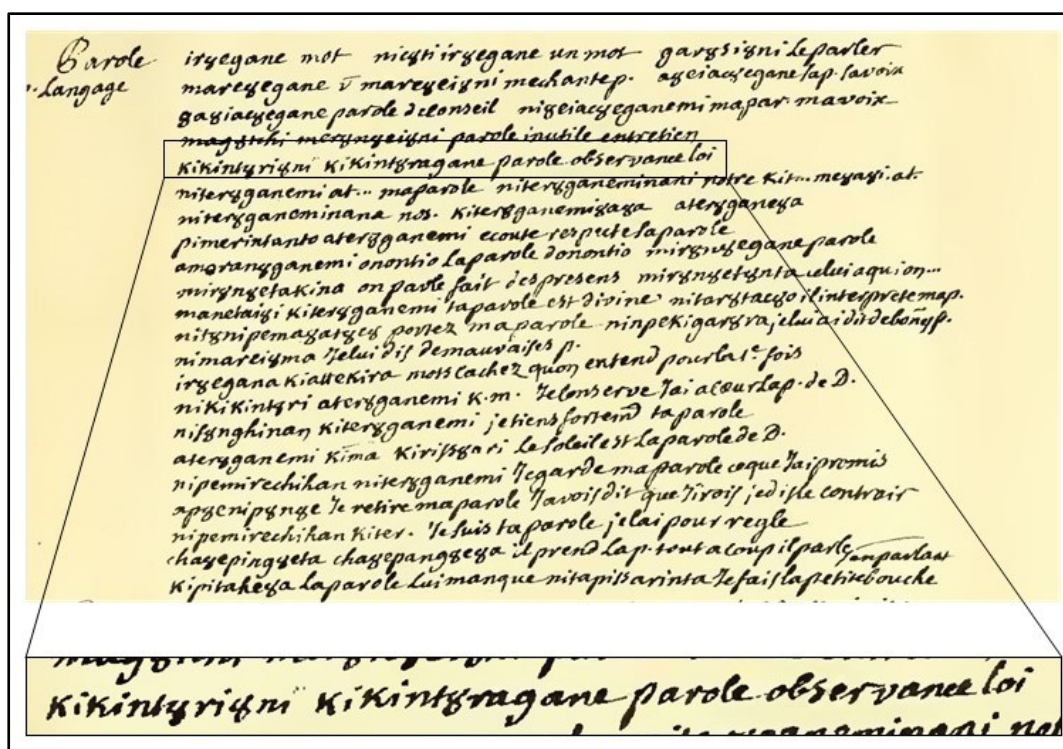 Parole irȣegane mot nicȣti irȣegane un mot garȣsiȣni Le parler
p. Langage mareȣegane ū mareȣeiȣni mechante p. aȣeiacȣegane la p. la voix
gaȣiacȣegane parole de Conseil niȣeiacȣeganemi ma par. ma voix
parole inutile entretien
kikintȣriȣni kikintȣragane parole observance loi
niterȣganemi at... ma parole niterȣganeminani notre Kit... meȣaȣi. at.
niterȣganeminana nos. Kiterȣganemiȣaȣa aterȣganeȣa
pimerintanto aterȣganemi ecoute respecte la parole
onontio La parole donontio mirȣnȣegane parole
mirȣnȣetakina on parle fait des presens mirȣnȣetȣnta celui a qui on...
manetaȣi Kiterȣganemi ta parole est divine nitarȣtacȣo il interprete ma p.
portez ma parole je lui ai dit de bonnes p.
nimareiȣma Je lui dis de mauvaises p.
irȣegana Kiattekira mots cachez quon entend pour la 1ᵉ fois
niKiKintȣri aterȣganemi K.m. Je conserve Jai a coeur la p. de D.
Kiterȣganemi je tiens ta parole
aterȣganemi Kima Kirisȣari Le soleil est La parole de D.
nipemirechihan niterȣganemi Je garde ma parole ce que Jai promis
apȣenipȣnȣe Je retire ma parole Javois dit que Jirois je dis le contrair
nipemirechihan Kiter. Je suis ta parole je lai pour regle
chaȣepingȣeta chaȣepangȣeȣa il prend La p. tout a coup il parle en parlant
Kipitaheȣa La parole Lui manque nitapissarinta Je fais la petite bouche
kikintȣriȣni kikintȣragane parole observance loi